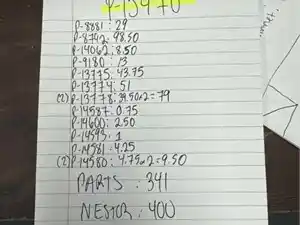 P-15970
P-8881: 29
P-8792: 98.50
P-14062: 8.50
P-9180: 13
P-13775: 43.75
P-13774: 51
(2) P-13778: 39.50x2=79
P-14587: 0.75
P-14600: 2.50
P-14595: 1
P-14581: 4.25
(2) P-14580: 4.75x2=9.50
PARTS: 341
NESTOR: 400